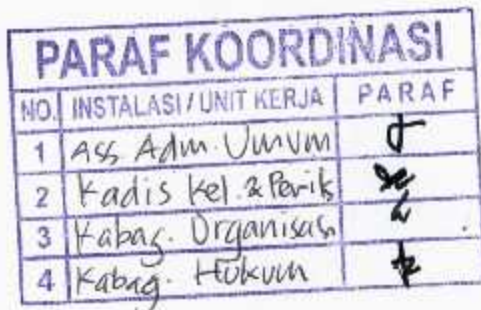 PARAF KOORDINASI
NO. INSTALASI / UNIT KERJA PARAF
1 Ass Adm. Umum
2 Kadis Kel. & Perik
3 Kabag. Organisasi
4 Kabag. Hukum